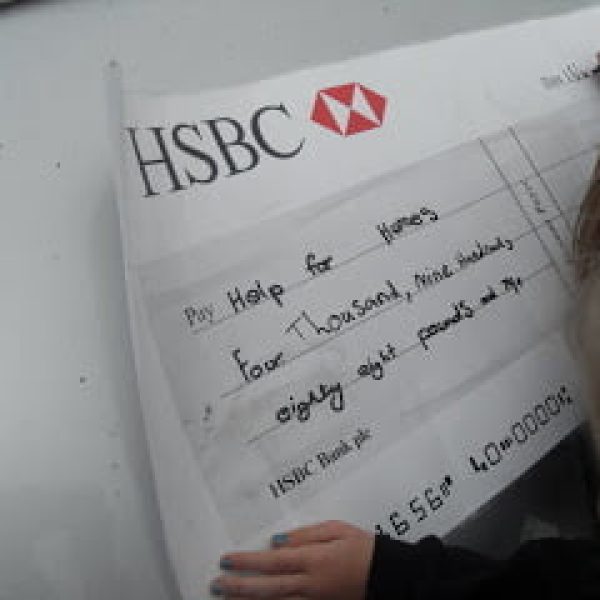 HSBC
Pay Help for Heroes
Four Thousand, Nine Hundred,
eighty eight pounds and
HSBC Bank plc